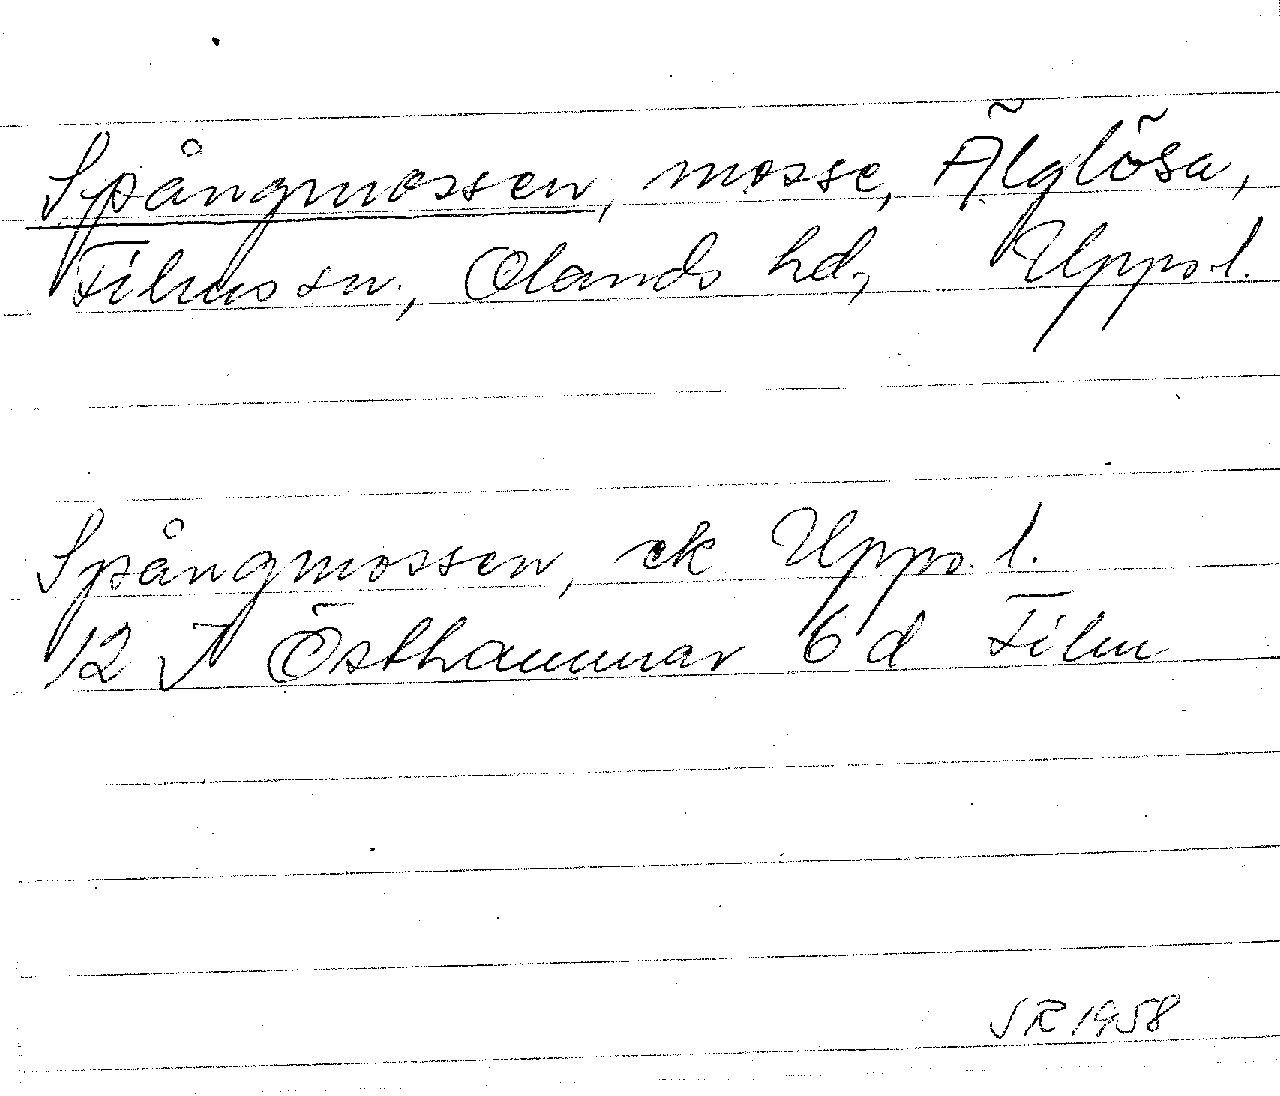 Spångmossen, mosse, Älglösa,
Films sn., Olands hd, Uppsl.
Spångmossen, ek Upps. l.
12 I Östhammar 6 d Film
SR 1958